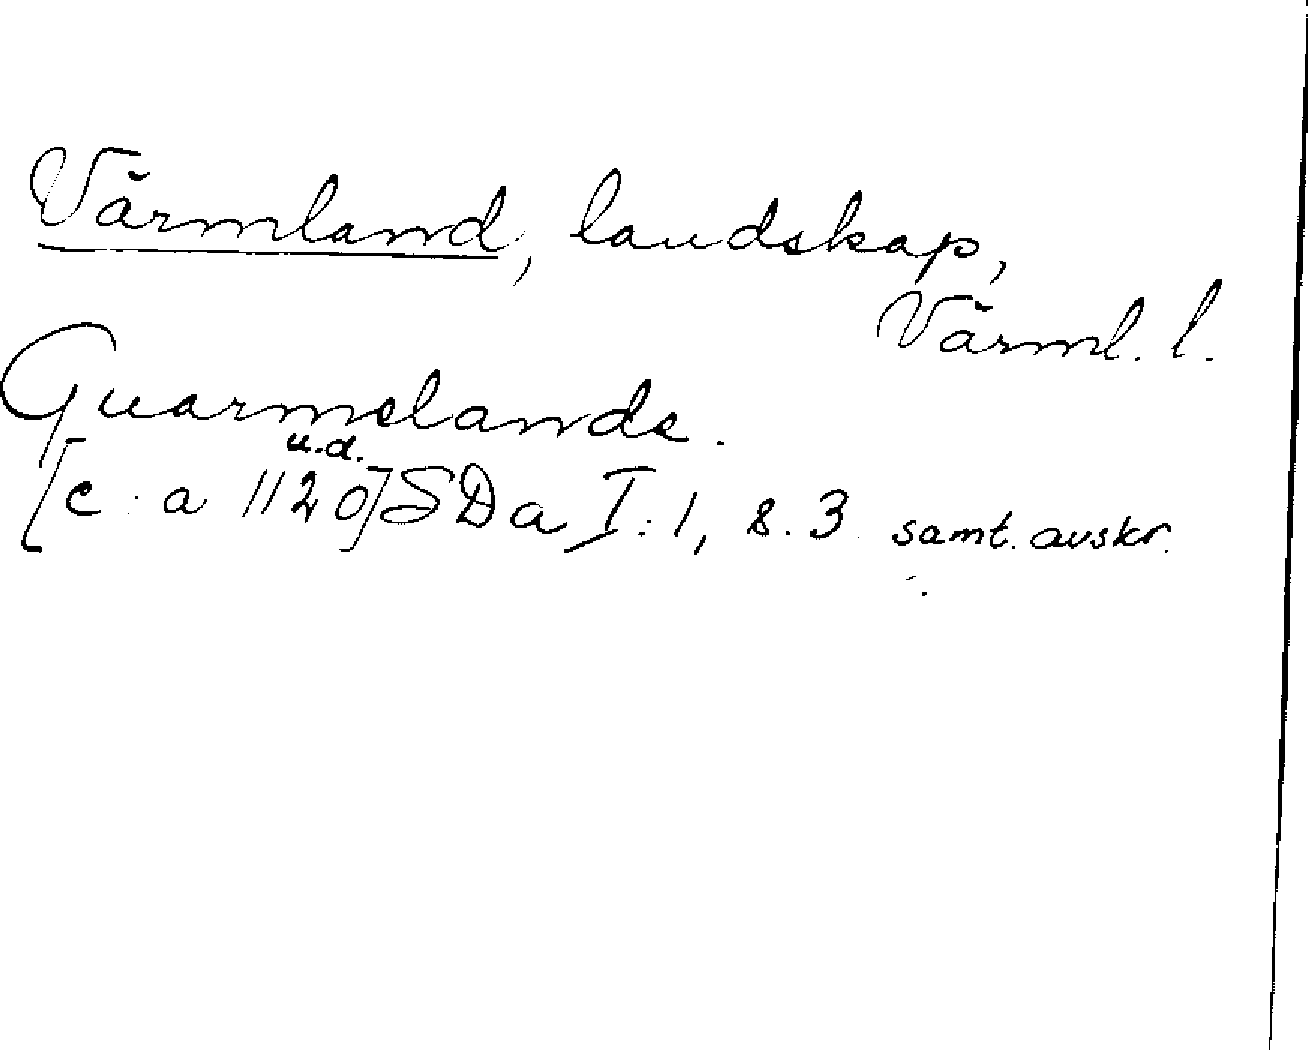 Värmland, landskap,
Värml. l.
Guarmelande.
u.d.
[c. a 1120] SDa I:1, s. 3 samt. avskr.